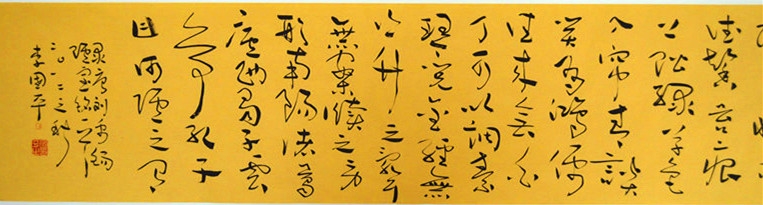 德馨苔痕
上階綠草色
入帘青談
笑有鴻儒
往來無白
丁可以調素
琴閱金經無
絲竹之亂耳
無案牘之勞
形南陽諸葛
廬西蜀子雲
亭孔子
曰何陋之有
錄唐劉禹錫
陋室銘
二〇一二之秋
李国平